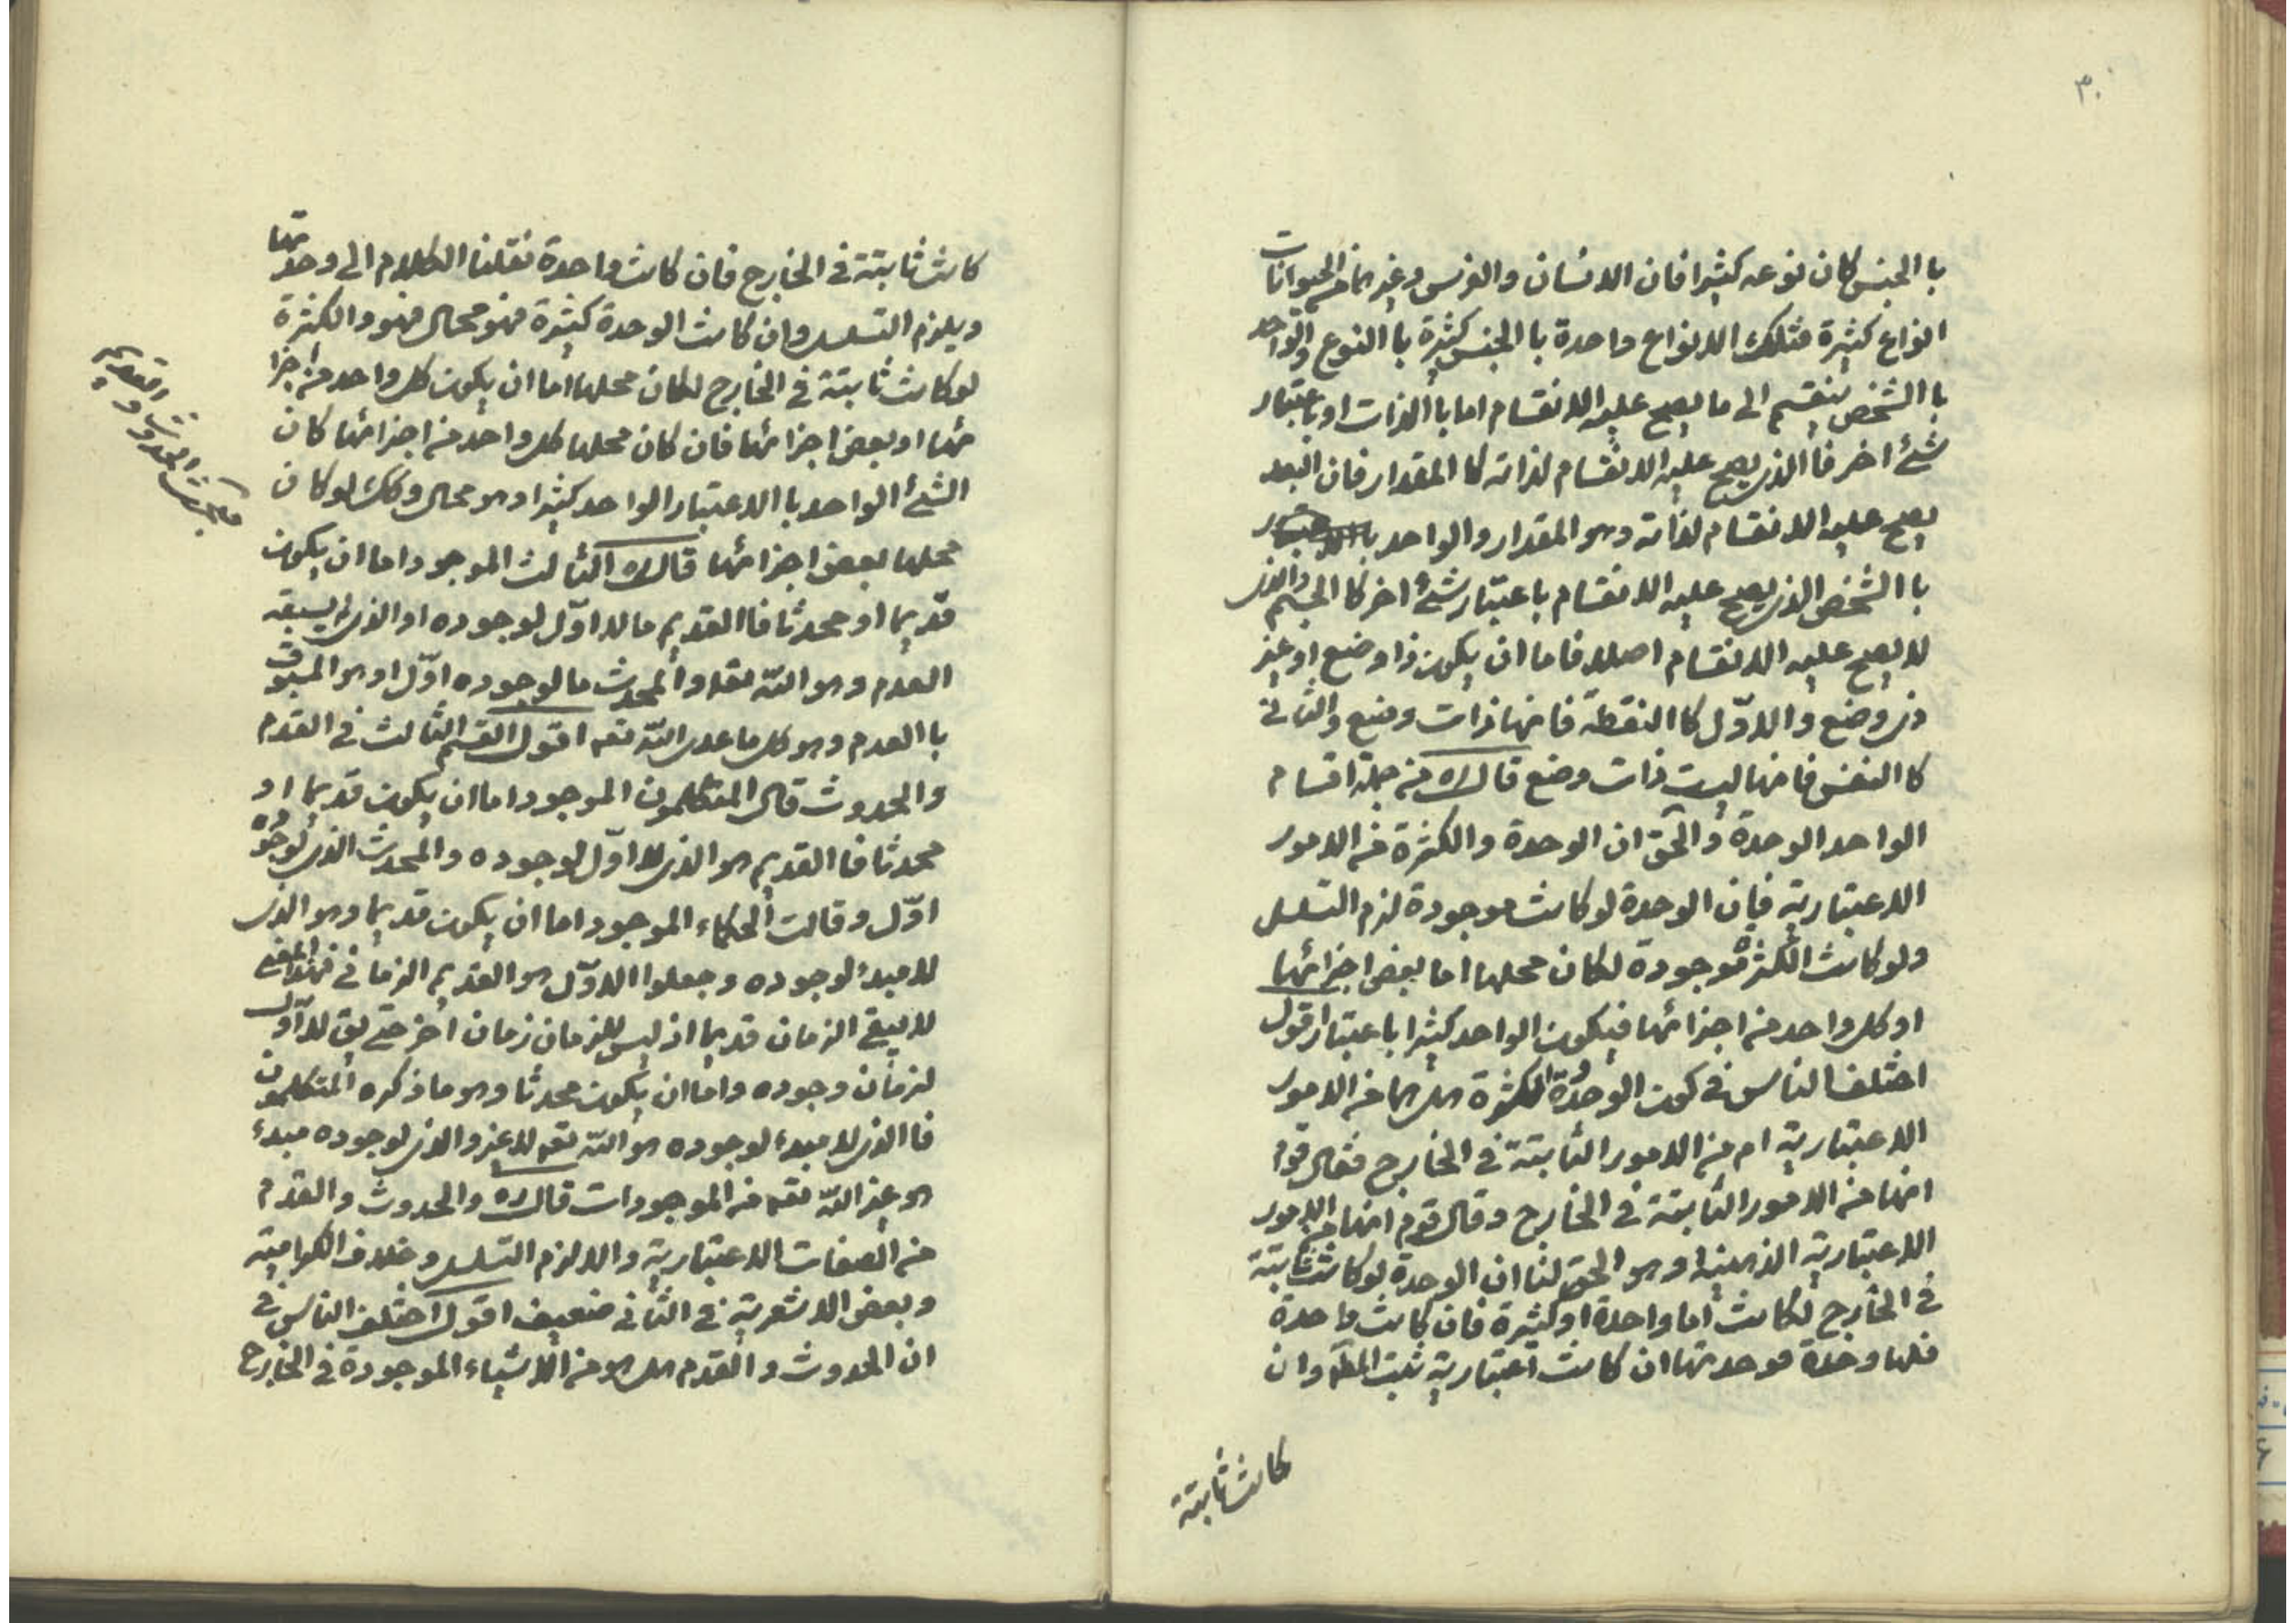 ٣٠
با الجنس كان نوعه كثيرا فان الانسان والفرس وغيرهما من الحيوانات
انواع كثيرة فتلك الانواع واحدة با الجنس كثيرة با النوع والواحد
با الشخص ينقسم الى ما يصح عليه الانقسام اما با الذات او باعتبار
شئ اخر فا الذى يصح عليه الانقسام لذاته كا المقدار فان البعد
يصح عليه الانقسام لذاته وهو المقدار والواحد
با الشخص الذى يصح عليه الانقسام باعتبار شئ اخر كا الجسم والذى
لا يصح عليه الانقسام اصلا فاما ان يكون ذا وضع او غير
ذى وضع والاوّل كا النقطة فانها ذات وضع والثانى
كا النفس فانها ليست ذات وضع قال ره من جملة اقسام
الواحد الوحدة والحق ان الوحدة والكثرة من الامور
الاعتبارية فان الوحدة لو كانت موجودة لزم التسلسل
ولو كانت الكثرة موجودة لكان محلها اما بعض اجزائها
او كل واحد من اجزائها فيكون الواحد كثيرا باعتبار اقول
اختلف الناس فى كون الوحدة والكثرة هل هما من الامور
الاعتبارية ام من الامور الثابتة فى الخارج فقال قوم
انها من الامور الثابتة فى الخارج وقال قوم انها من الامور
الاعتبارية الذهنية وهو الحق لنا ان الوحدة لو كانت ثابتة
فى الخارج لكانت اما واحدة او كثيرة فان كانت واحدة
فلها وحدة فوحدتها ان كانت اعتبارية ثبت المطّ وان
كانت ثابتة
كانت ثابتة فى الخارج فان كانت واحدة نقلنا الكلام الى وحدتها
ويلزم التسلسل وان كانت الوحدة كثيرة فهو محال فهو والكثرة
لو كانت ثابتة فى الخارج لكان محلها اما ان يكون كل واحد من اجزا
ئها او بعض اجزائها فان كان محلها كل واحد من اجزائها كان
الشئ الواحد با الاعتبار الواحد كثيرا وهو محال وكك لو كان
محلها بعض اجزائها قال ره الثالث الموجود اما ان يكون
قديما او محدثا فا القديم ما لا اوّل لوجوده او الذى لا يسبقه
العدم وهو اللّه تعه والمحدث ما لوجوده اوّل او هو المسبوق
با العدم وهو كل ما عدى اللّه تعه اقول القسم الثالث فى القدم
والحدوث قال المتكلمون الموجود اما ان يكون قديما او
محدثا فا القديم هو الذى لا اوّل لوجوده والمحدث الذى لوجوده
اوّل وقالت الحكماء الموجود اما ان يكون قديما وهو الذى
لا مبدء لوجوده وجعلوا الاوّل هو القديم الزمانى فبهذا المعنى
لا يبقى الزمان قديما اذ ليس للزمان زمان اخر حتى يق لا اوّل
لزمان وجوده واما ان يكون محدثا وهو ما ذكره المتكلمون
فا الذى لا مبدء لوجوده هو اللّه تعه لا غير والذى لوجوده مبدء
هو غير اللّه تعه من الموجودات قال ره والحدوث والقدم
من الصفات الاعتبارية والا لزم التسلسل وخلاف الكرامية
وبعض الاشعرية فى الثانى ضعيف اقول اختلف الناس فى
ان الحدوث والقدم هل هو من الاشياء الموجودة فى الخارج
الحدوث و